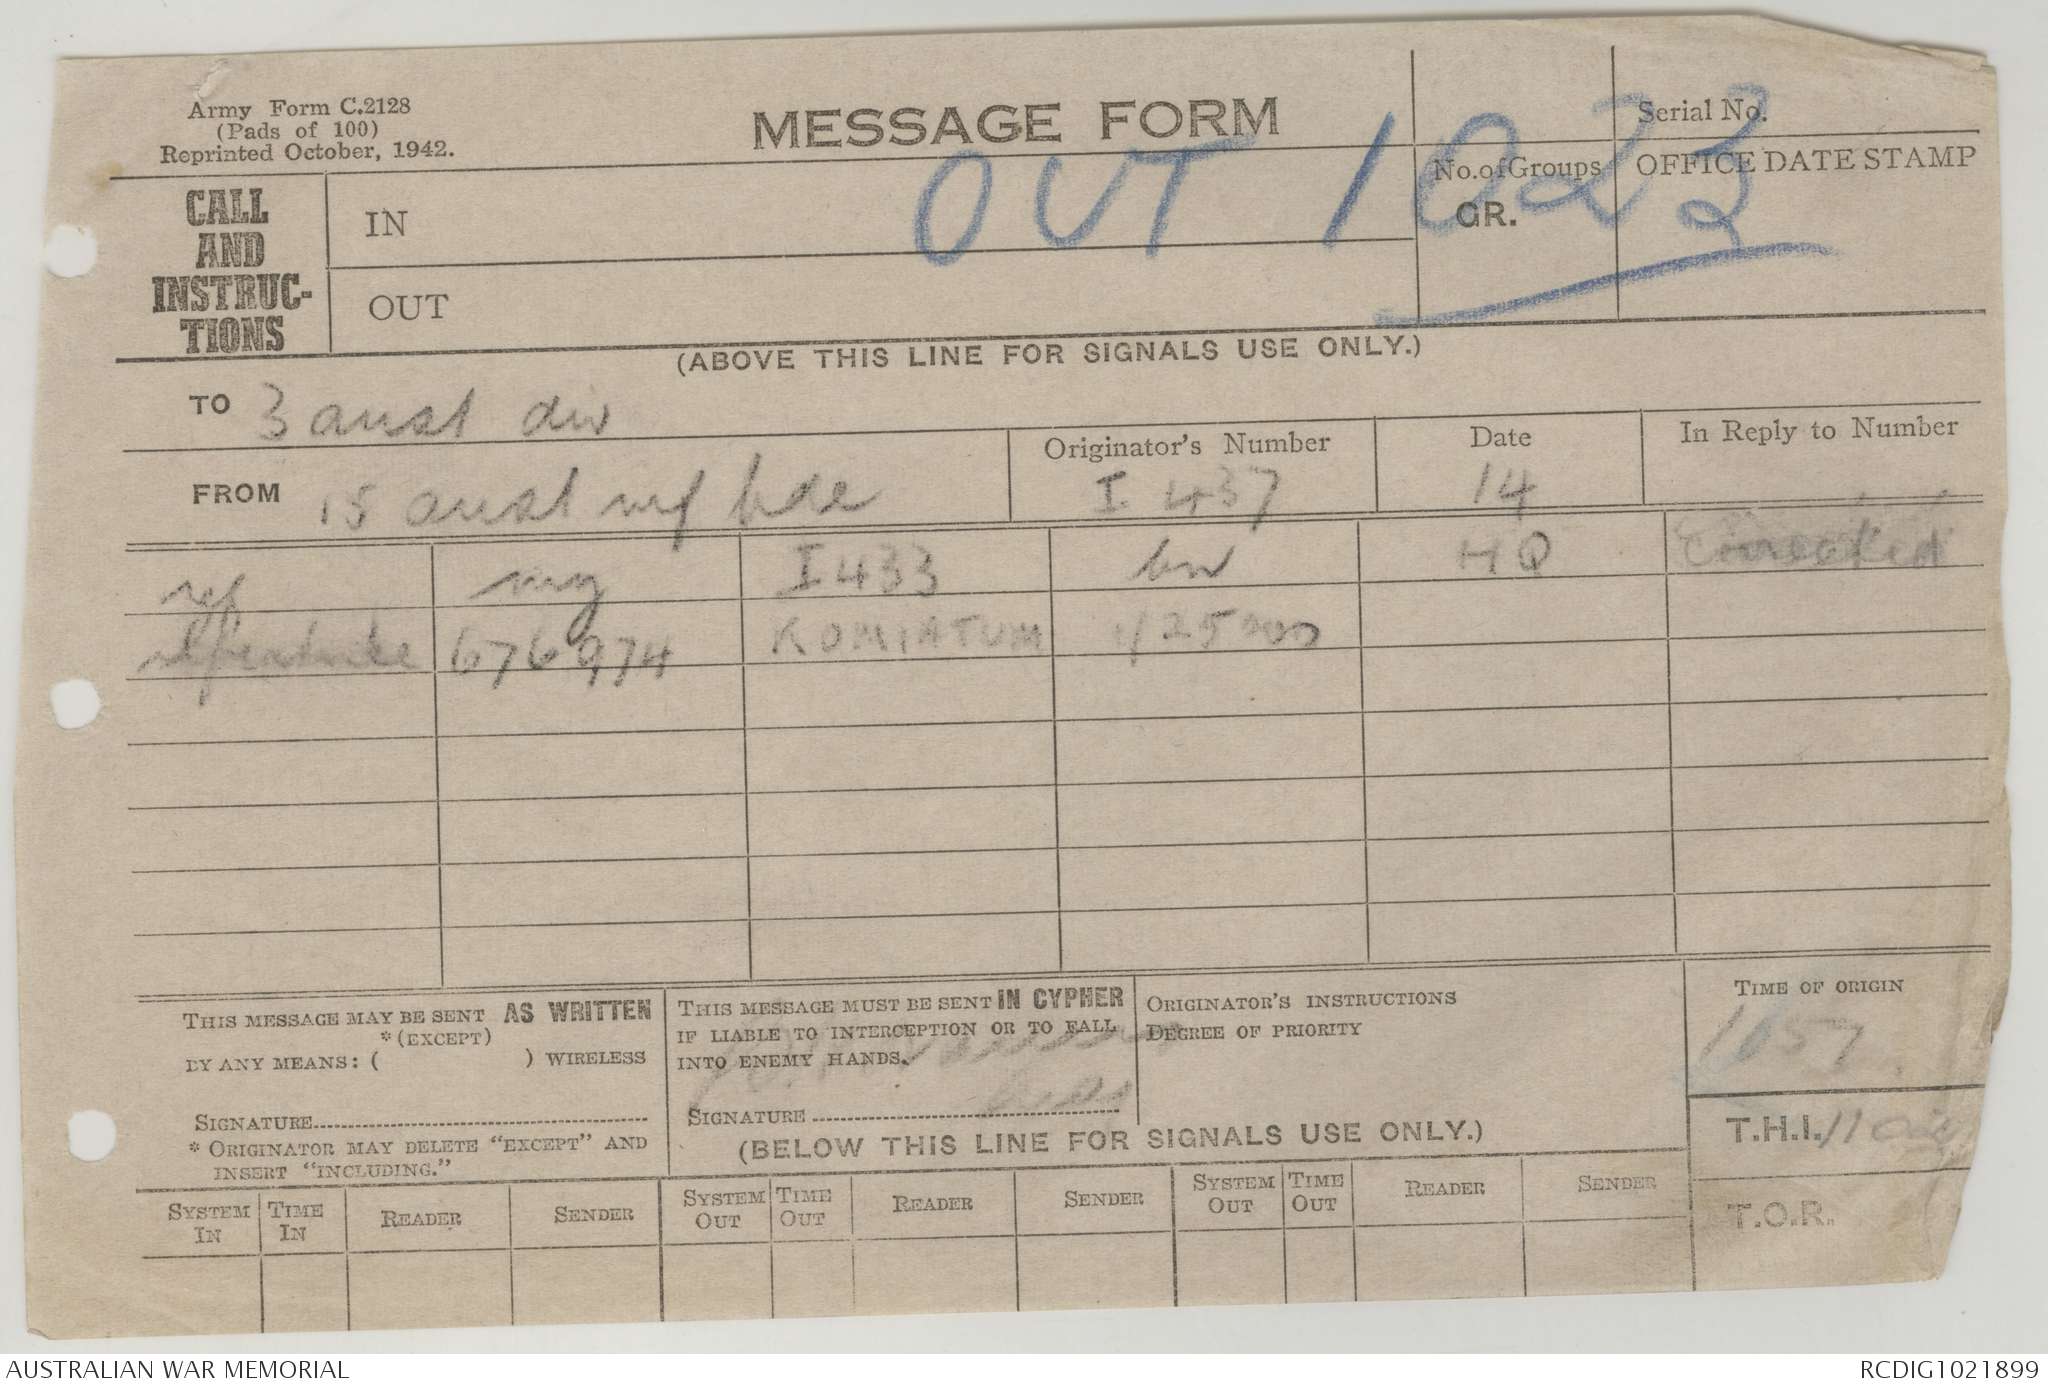 Army Form C.2128
(Pads of 100)
Reprinted October, 1942.
MESSAGE FORM
Serial No.
CALL AND INSTRUC-TIONS
IN
OUT 1023
No. of Groups
GR.
OFFICE DATE STAMP
OUT
(ABOVE THIS LINE FOR SIGNALS USE ONLY.)
TO 3 aust div
FROM 15 aust inf bde
Originator's Number
I 437
Date
14
In Reply to Number
ref my I 433 bn HQ
676974 KOMIATUM 1/25000
THIS MESSAGE MAY BE SENT AS WRITTEN
*(EXCEPT)
BY ANY MEANS: ( ) WIRELESS
SIGNATURE
* ORIGINATOR MAY DELETE "EXCEPT" AND
INSERT "INCLUDING."
THIS MESSAGE MUST BE SENT IN CYPHER
IF LIABLE TO INTERCEPTION OR TO FALL
INTO ENEMY HANDS.
SIGNATURE
ORIGINATOR'S INSTRUCTIONS
DEGREE OF PRIORITY
TIME OF ORIGIN
1057
T.H.I.
T.O.R.
(BELOW THIS LINE FOR SIGNALS USE ONLY.)
SYSTEM IN TIME IN READER SENDER SYSTEM OUT TIME OUT READER SENDER SYSTEM OUT TIME OUT READER SENDER
AUSTRALIAN WAR MEMORIAL
RCDIG1021899